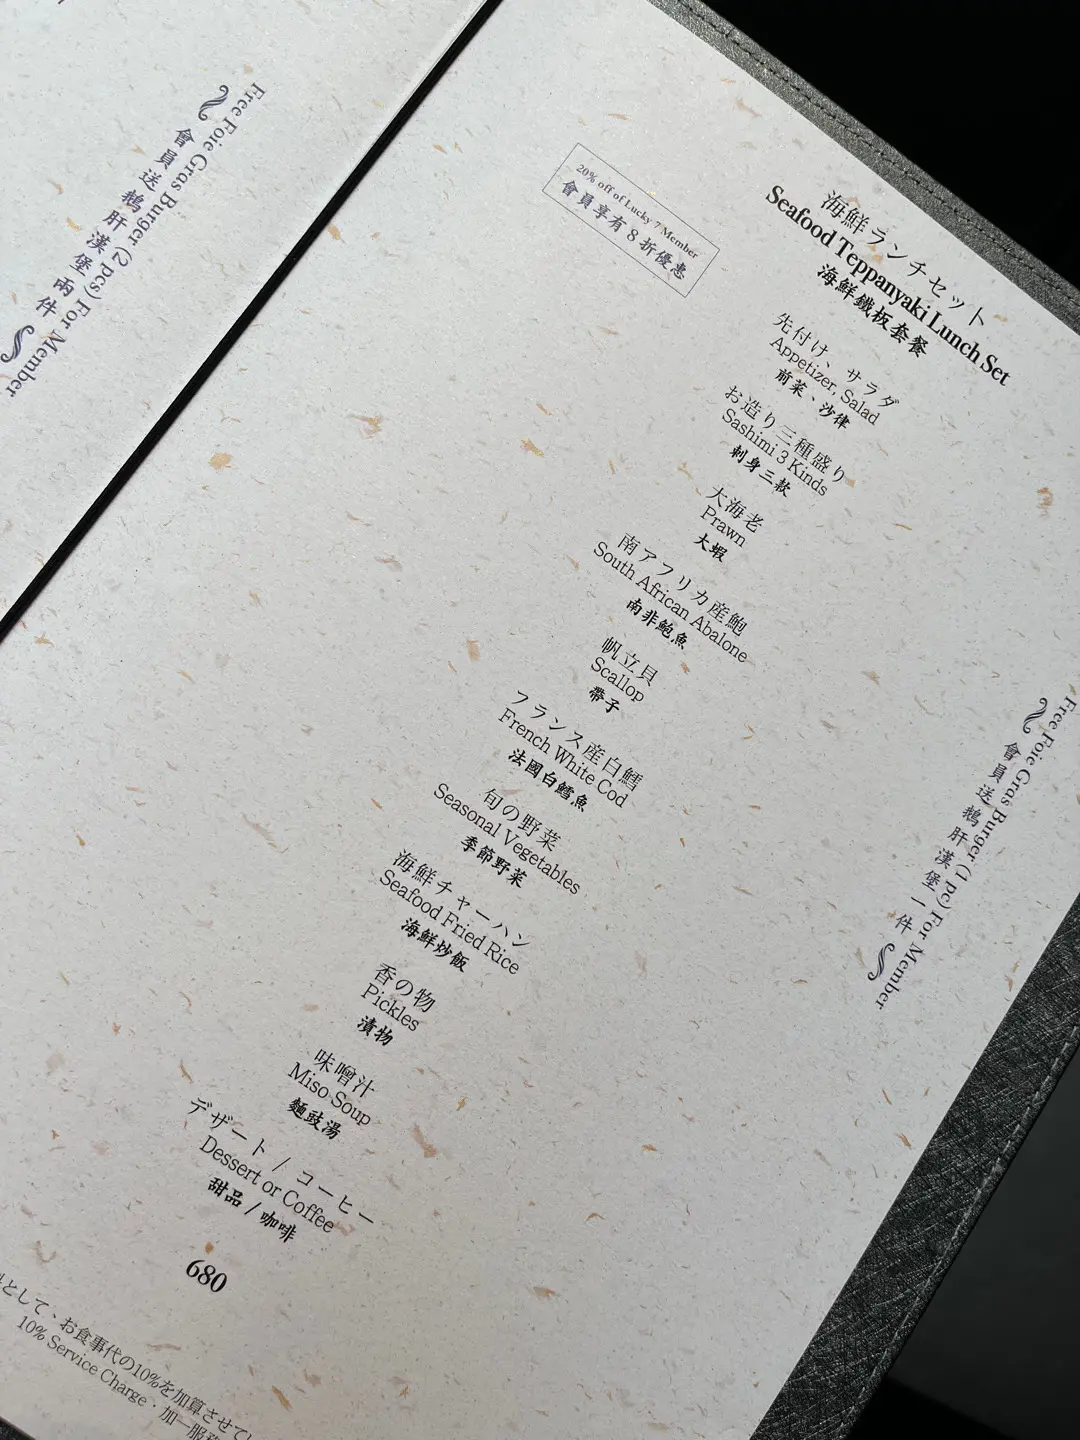 Free Foie Gras Burger (2 pcs) For Member
會員送鵝肝漢堡兩件
20% off of Lucky 7 Member
會員享有 8 折優惠
海鮮ランチセット
Seafood Teppanyaki Lunch Set
海鮮鐵板套餐
先付け、サラダ
Appetizer, Salad
前菜、沙律
お造り三種盛り
Sashimi 3 Kinds
刺身三款
大海老
Prawn
大蝦
南アフリカ産鮑
South African Abalone
南非鮑魚
帆立貝
Scallop
帶子
フランス産白鱈
French White Cod
法國白鱈魚
旬の野菜
Seasonal Vegetables
季節野菜
海鮮チャーハン
Seafood Fried Rice
海鮮炒飯
香の物
Pickles
漬物
味噌汁
Miso Soup
麵豉湯
デザート / コーヒー
Dessert or Coffee
甜品 / 咖啡
680
として、お食事代の10%を加算させてい
10% Service Charge · 加一服務
Free Foie Gras Burger (1 pc) For Member
會員送鵝肝漢堡一件